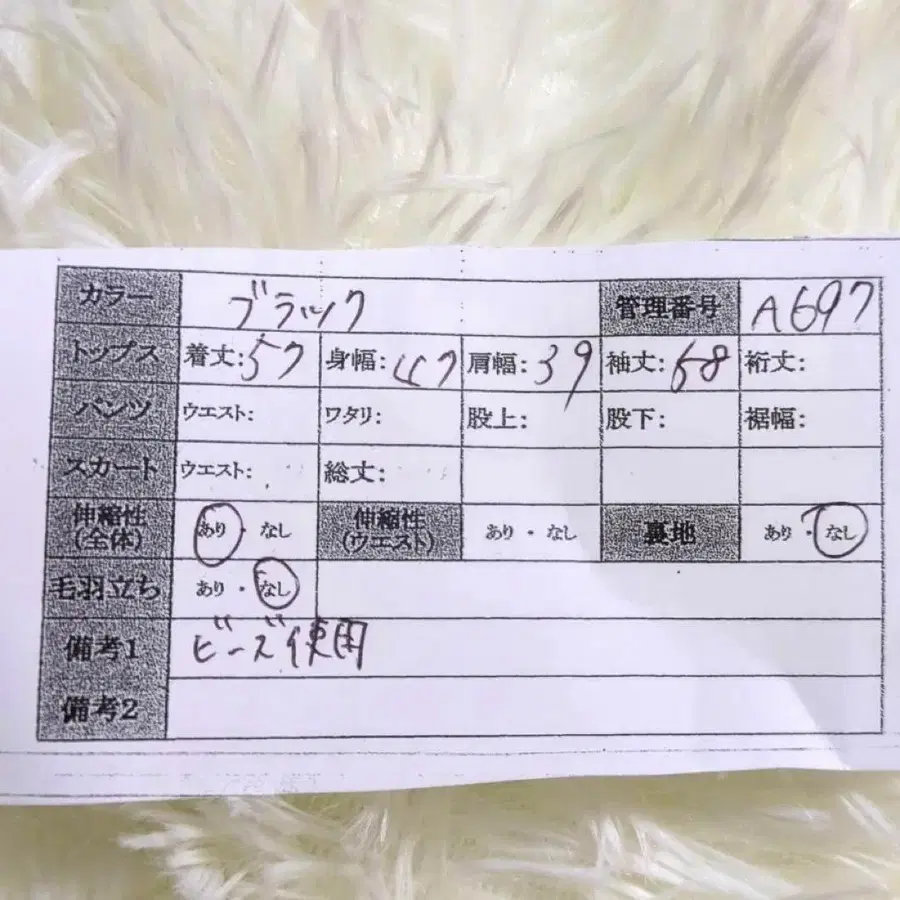 カラー ブラック 管理番号 A697
トップス 着丈:57 身幅:47 肩幅:39 袖丈:58 裄丈:
パンツ ウエスト: ワタリ: 股上: 股下: 裾幅:
スカート ウエスト: 総丈:
伸縮性(全体) あり・なし 伸縮性(ウエスト) あり・なし 裏地 あり・なし
毛羽立ち あり・なし
備考1 ビーズ使用
備考2